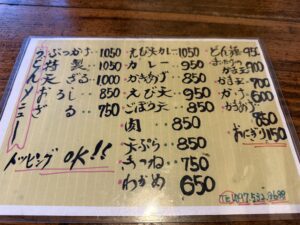 うどんメニュー
ぶっかけ 1050
特製 1050
天ざる 1000
おろし 850
ざる 750
トッピング OK!!
えび天カレー 1050
カレー 950
かきあげ 850
えび天 950
ごぼう天 850
肉 850
天ぷら 850
きつね 750
わかめ 650
どん 950
700
天 700
かけ 600
かきあげ
750
おにぎり 150